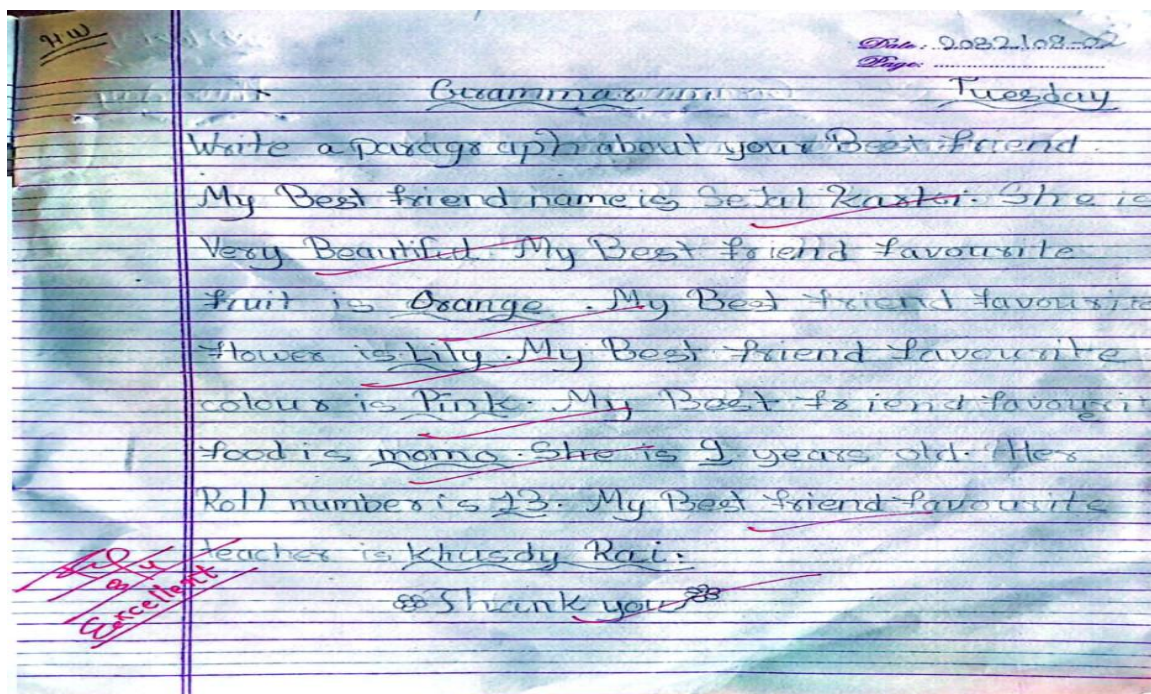 H.W
Date: 2082/08-02
Page:
Grammar Tuesday
Write a paragraph about your Best friend.
My Best friend name is Sejal Karki. She is
Very Beautiful. My Best friend favourite
fruit is Orange. My Best friend favourite
flower is Lily. My Best friend favourite
colour is Pink. My Best friend favourit
food is momo. She is 9 years old. Her
Roll number is 23. My Best friend favourite
teacher is Khusdy Rai.
Thank you
Excellent